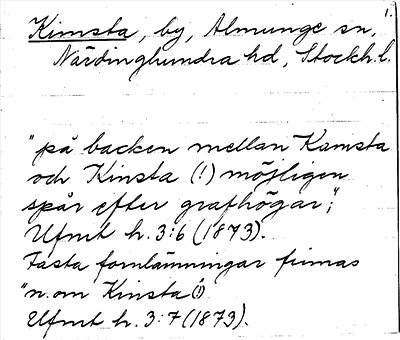 1.
Kimsta, by, Almunge sn,
Närdinghundra hd, Stockh. l.
"på backen mellan Kamsta
och Kinsta (!) möjligen
spår efter grafhögar";
Ufmt h. 3:6 (1873).
Fasta fornlämningar finnas
"n. om Kinsta (!)
Ufmt h. 3:7 (1873).